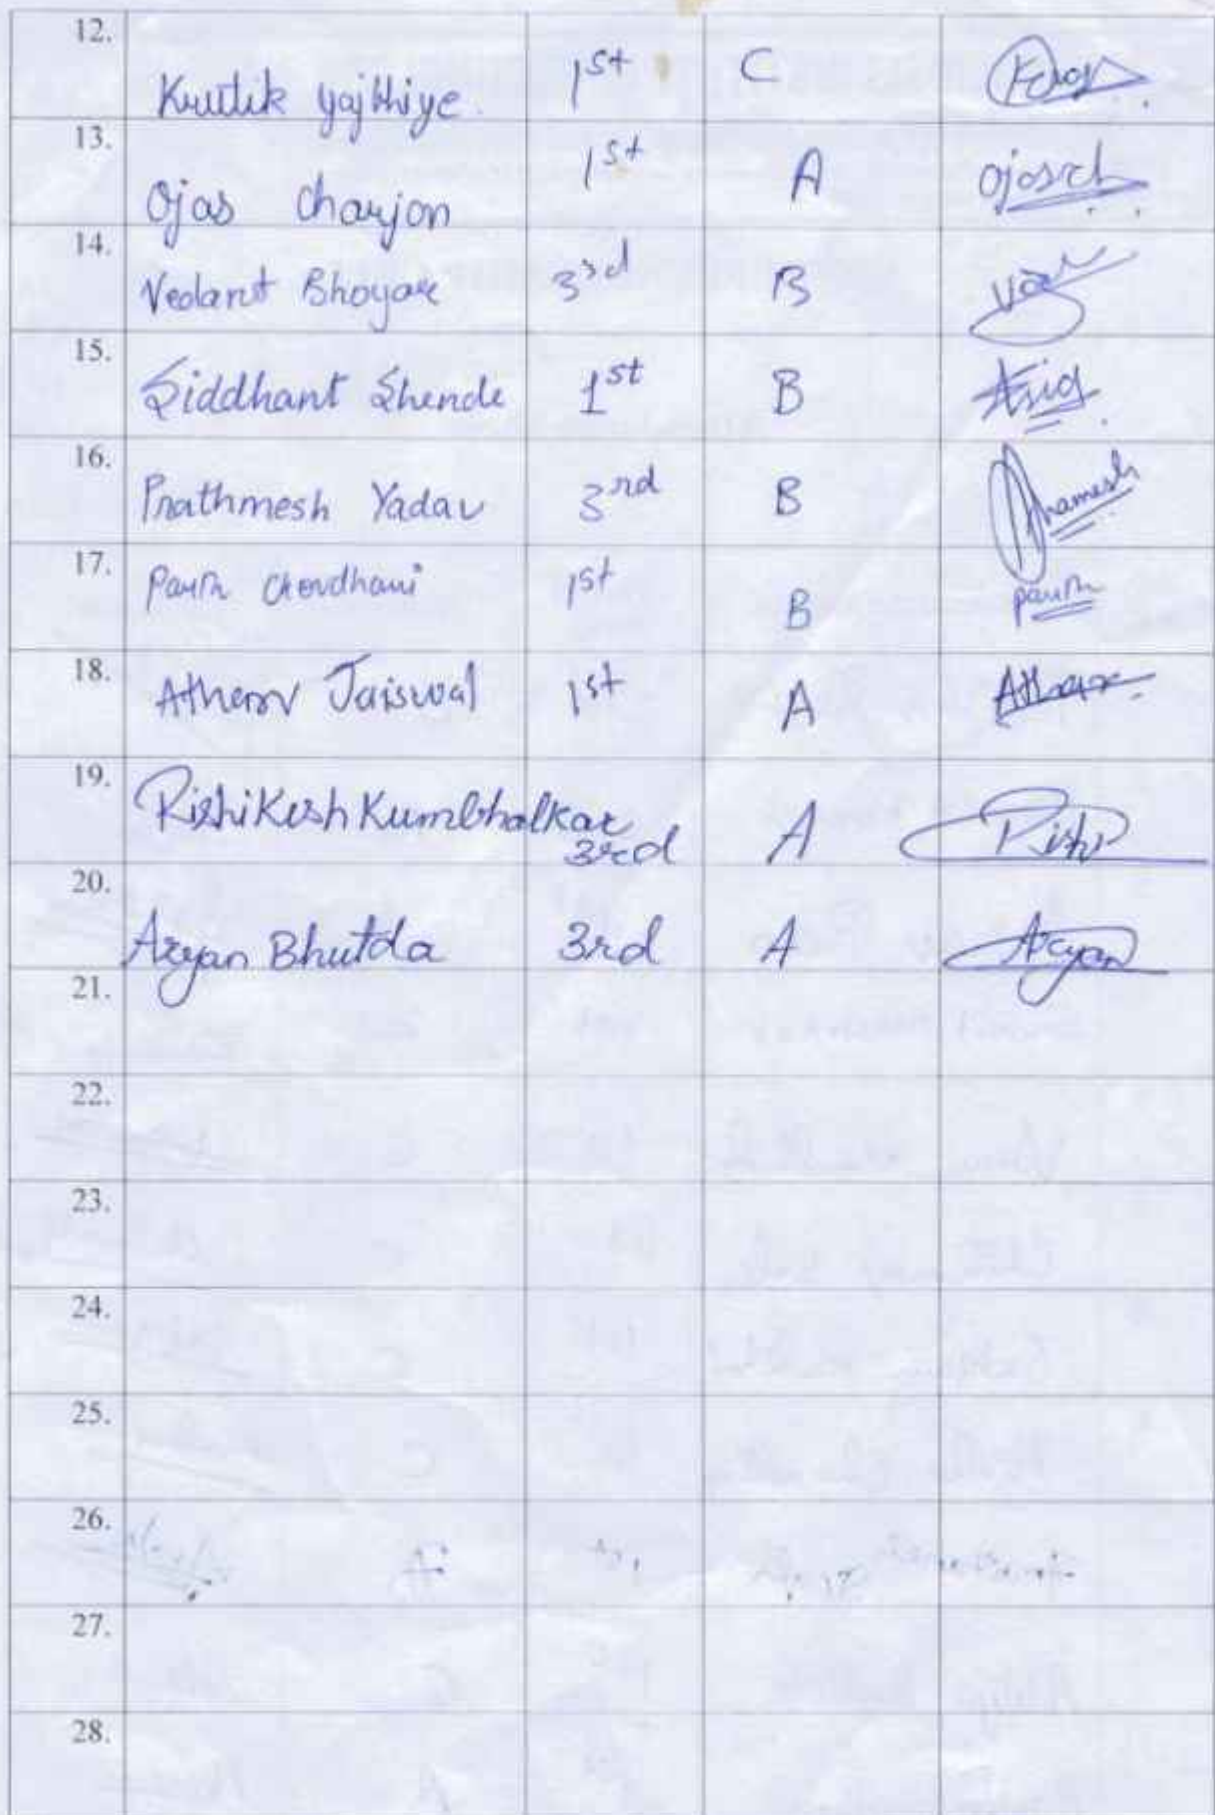 12. Krutik Yajbhiye. 1st C
13. Ojas Charjan 1st A Ojasrch
14. Vedant Bhoyar 3rd B
15. Siddhant Shende 1st B
16. Prathmesh Yadav 3rd B
17. Parth Choudhari 1st B Parth
18. Atharv Jaiswal 1st A Atharv
19. Rishikesh Kumbhalkar 3rd A Rishi
20. Aryan Bhutda 3rd A Aryan
21.
22.
23.
24.
25.
26.
27.
28.